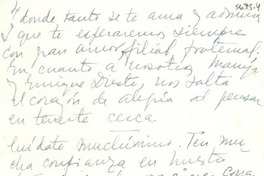 5695-4
y donde tanto se te ama y admira
y que te esperaremos siempre
con gran amor filial, fraternal.
En cuanto a nosotros, Maruja
y Enrique Dieste, nos salta
el corazón de alegría al pensar
en tenerte cerca
Cuídate muchísimo. Ten mu
cha confianza en nuestro